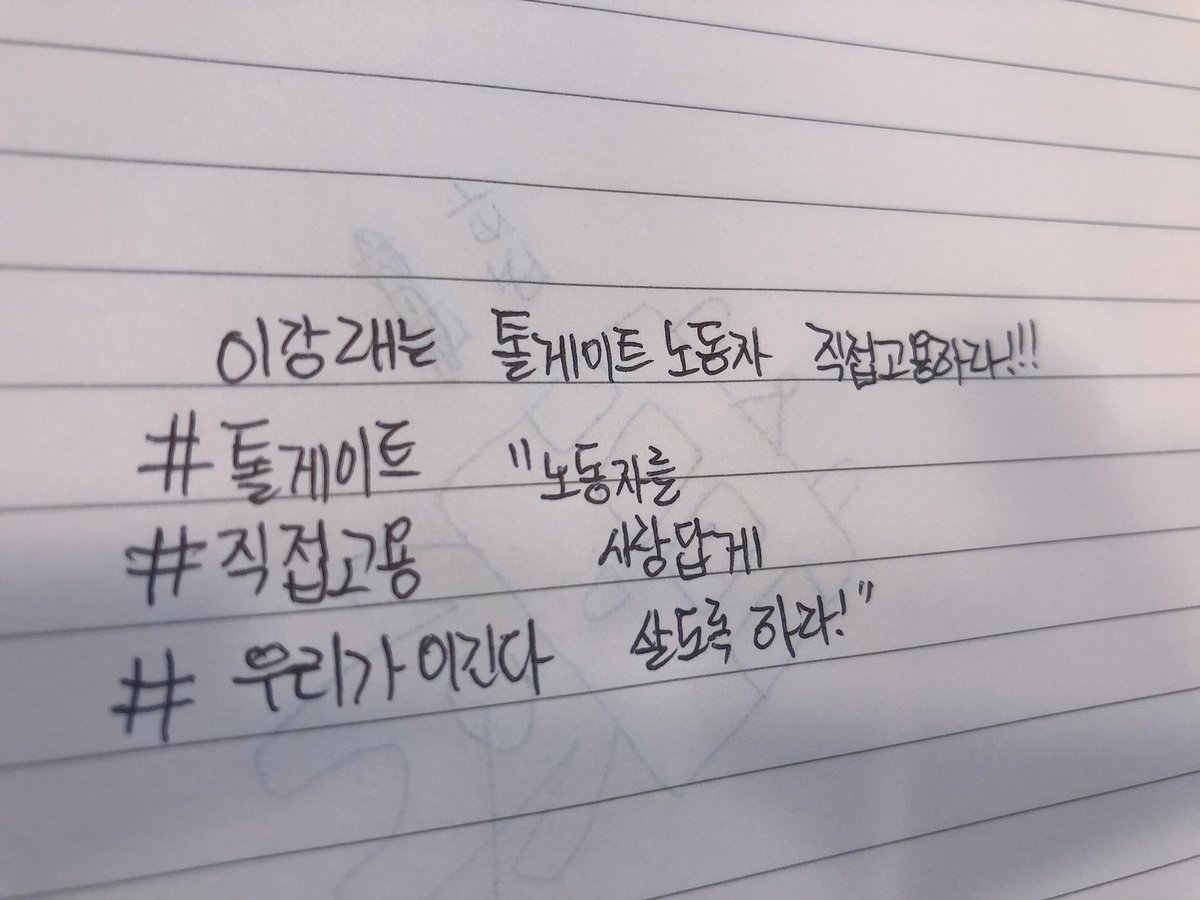 이강래는 톨게이트 노동자 직접고용하라!!!
#톨게이트
#직접고용
#우리가 이긴다
"노동자를
사람답게
살도록 하라!"